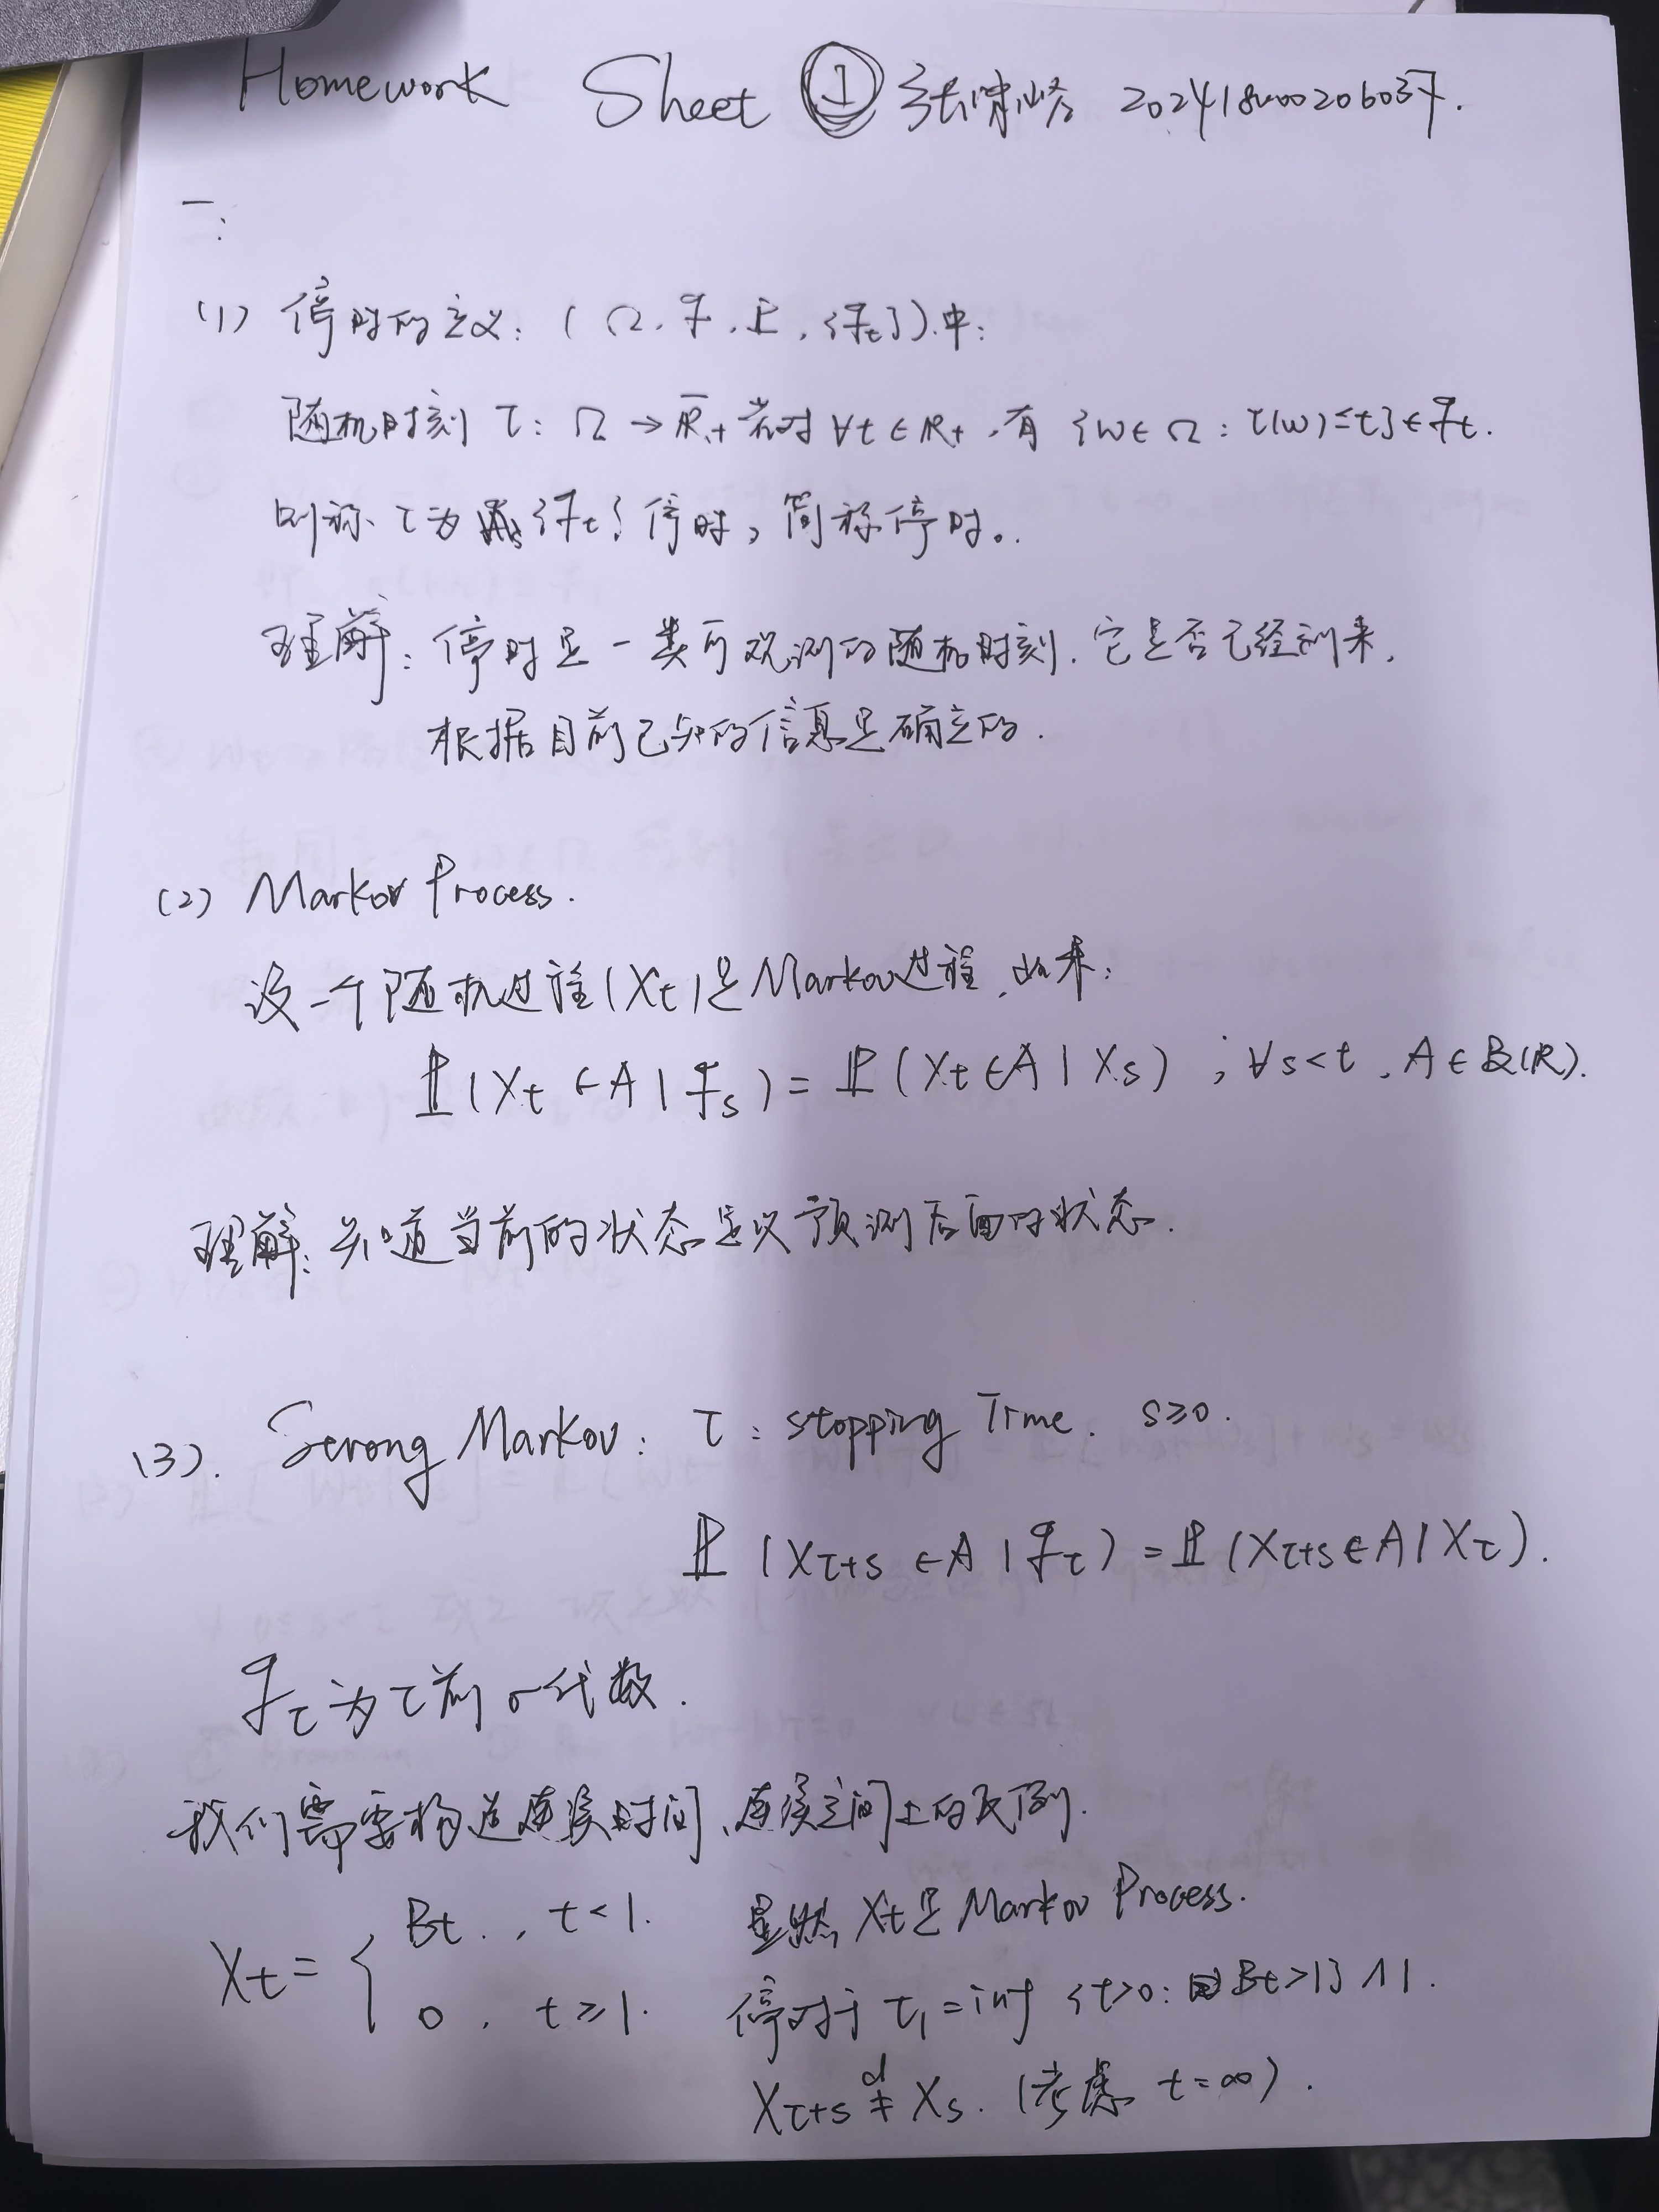 Homework Sheet ① 张啸峰
一:
(1) 停时的定义: (Ω, ℱ, ℙ, {ℱt})中:
随机时刻 τ: Ω → R̄+ 若对 ∀t ∈ R+, 有 {w ∈ Ω: τ(w) ≤ t} ∈ ℱt.
则称 τ为 {ℱt} 停时, 简称停时。
理解: 停时是一类可观测的随机时刻. 它是否已经到来,
根据目前已知的信息是确定的.
(2) Markov Process.
设一个随机过程(Xt)是Markov过程, 如果:
ℙ(Xt ∈ A | ℱs) = ℙ(Xt ∈ A | Xs) ; ∀s<t, A ∈ B(R).
理解: 知道当前的状态足以预测后面的状态.
(3). Strong Markov: τ: stopping Time. s≥0.
ℙ(Xτ+s ∈ A | ℱτ) = ℙ(Xτ+s ∈ A | Xτ).
ℱτ为τ前σ代数.
我们需要构造连续时间、连续空间上的反例.
Xt = { Bt., t<1. 显然 Xt是 Markov Process.
0, t≥1. 停对于 τ1 = inf {t>0: Bt>1}∧1.
Xτ+s ≠ᵈ Xs. (考虑 t=∞).